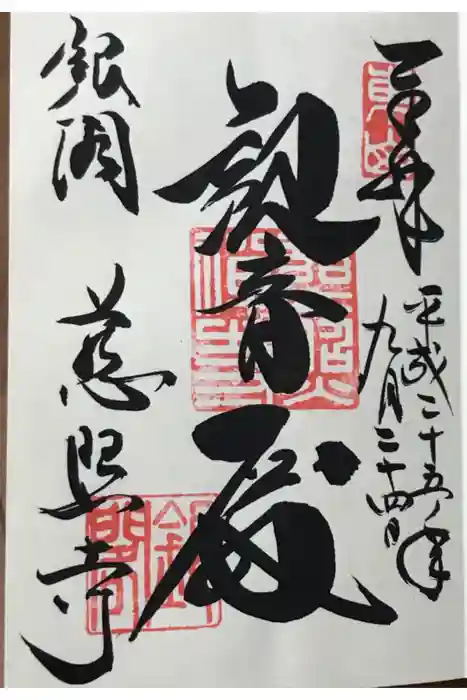 奉拝
平成二十五年
九月二十四日
観音殿
銀閣
慈照寺
銀閣